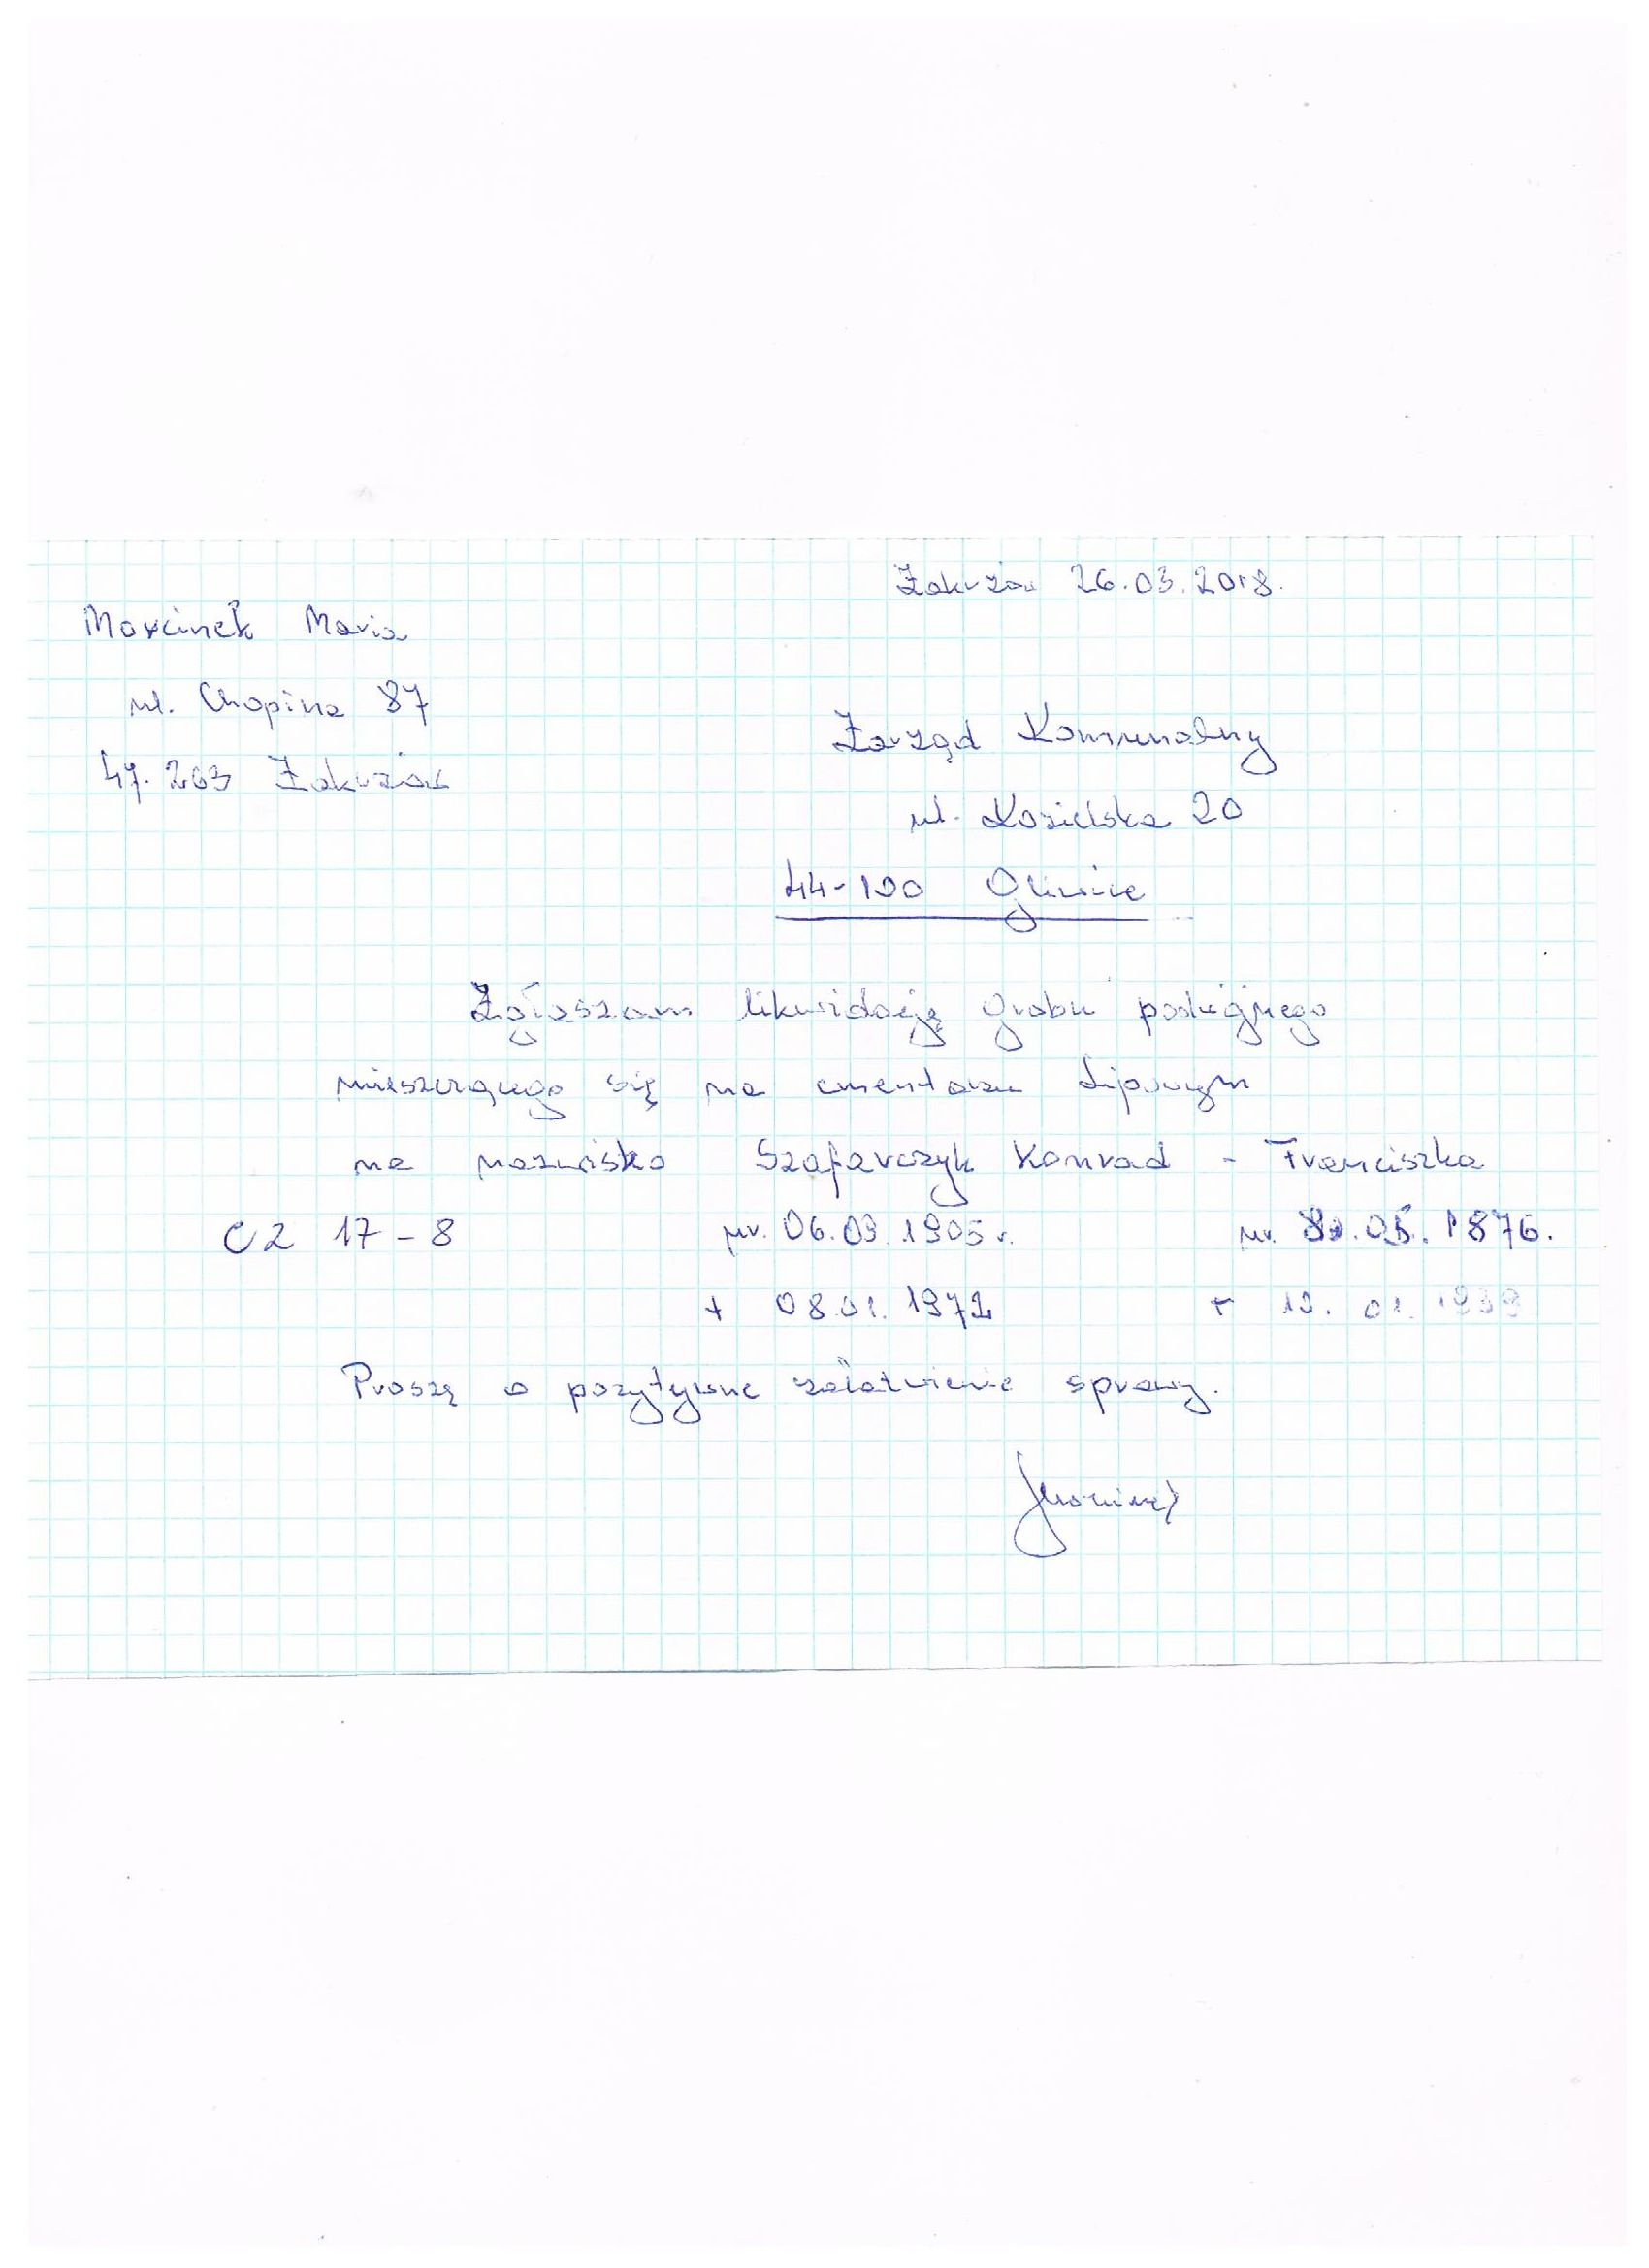 Zakrzów 26.03.2018.
Marcinek Maria
ul. Chopina 87
47-263 Zakrzów
Zarząd Komunalny
ul. Kozielska 20
44-100 Gliwice
Zgłaszam likwidację grobu
się na cmentarzu Lipowym
na nazwisko Szafarczyk Konrad - Franciszka
C2 17-8 ur. 06.03.1905 r. ur. .05.1876.
+ 08.01.1972 + 01.1939
Proszę o pozytywne załatwienie sprawy.
Marcinek